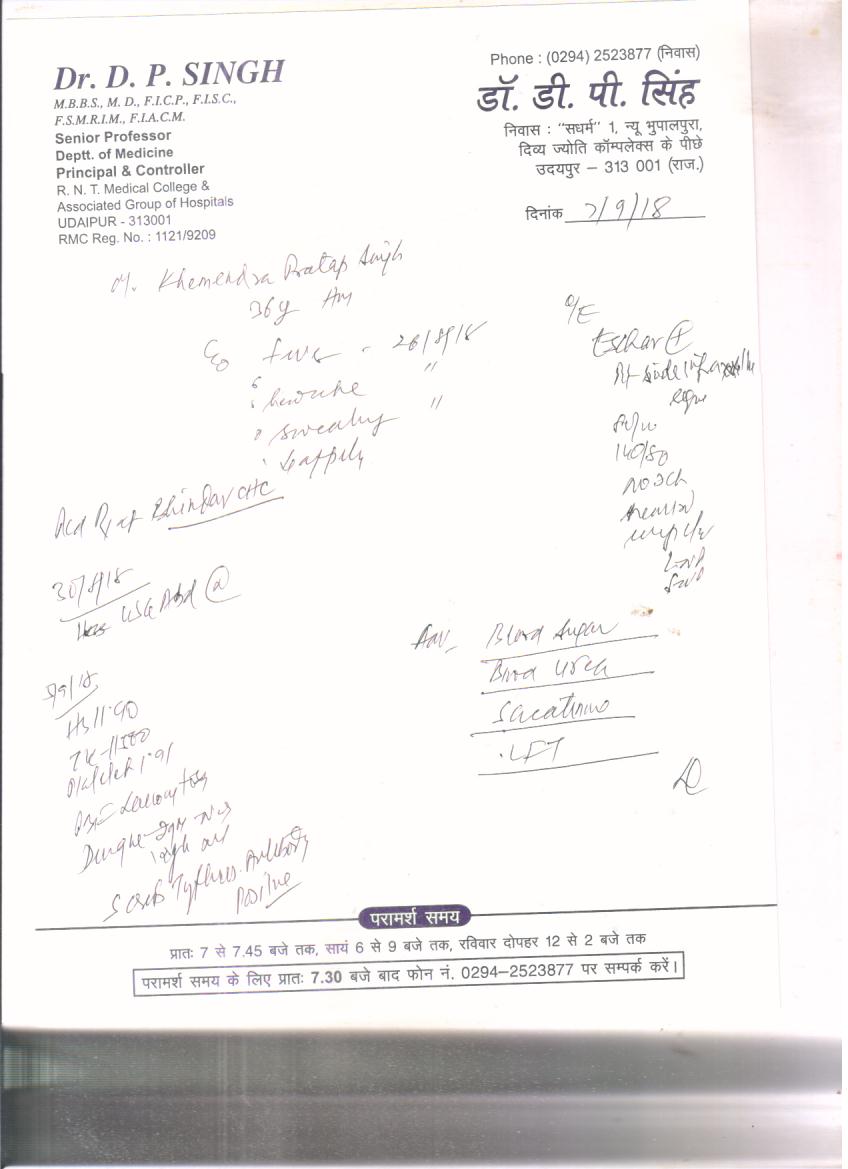 Dr. D. P. SINGH
M.B.B.S., M. D., F.I.C.P., F.I.S.C.,
F.S.M.R.I.M., F.I.A.C.M.
Senior Professor
Deptt. of Medicine
Principal & Controller
R. N. T. Medical College &
Associated Group of Hospitals
UDAIPUR - 313001
RMC Reg. No. : 1121/9209
Phone : (0294) 2523877 (निवास)
डॉ. डी. पी. सिंह
निवास : "सधर्म" 1, न्यू भुपालपुरा,
दिव्य ज्योति कॉम्पलेक्स के पीछे
उदयपुर – 313 001 (राज.)
दिनांक 7/9/18
Khemendra Pratap Singh
36y
C/o fever - 26/8/18
headache "
sweating "
Bhindar CHC
30/8/18
USG Abd
O/E
Eschar +
Rt side
140/80
Adv Blood Sugar
Blood Urea
S creatinine
LFT
5/9/18
Hb 11.90
Platelet 1.91
Dengue IgM
Scrub Typhus Antibody
Positive
परामर्श समय
प्रातः 7 से 7.45 बजे तक, सायं 6 से 9 बजे तक, रविवार दोपहर 12 से 2 बजे तक
परामर्श समय के लिए प्रातः 7.30 बजे बाद फोन नं. 0294–2523877 पर सम्पर्क करें।